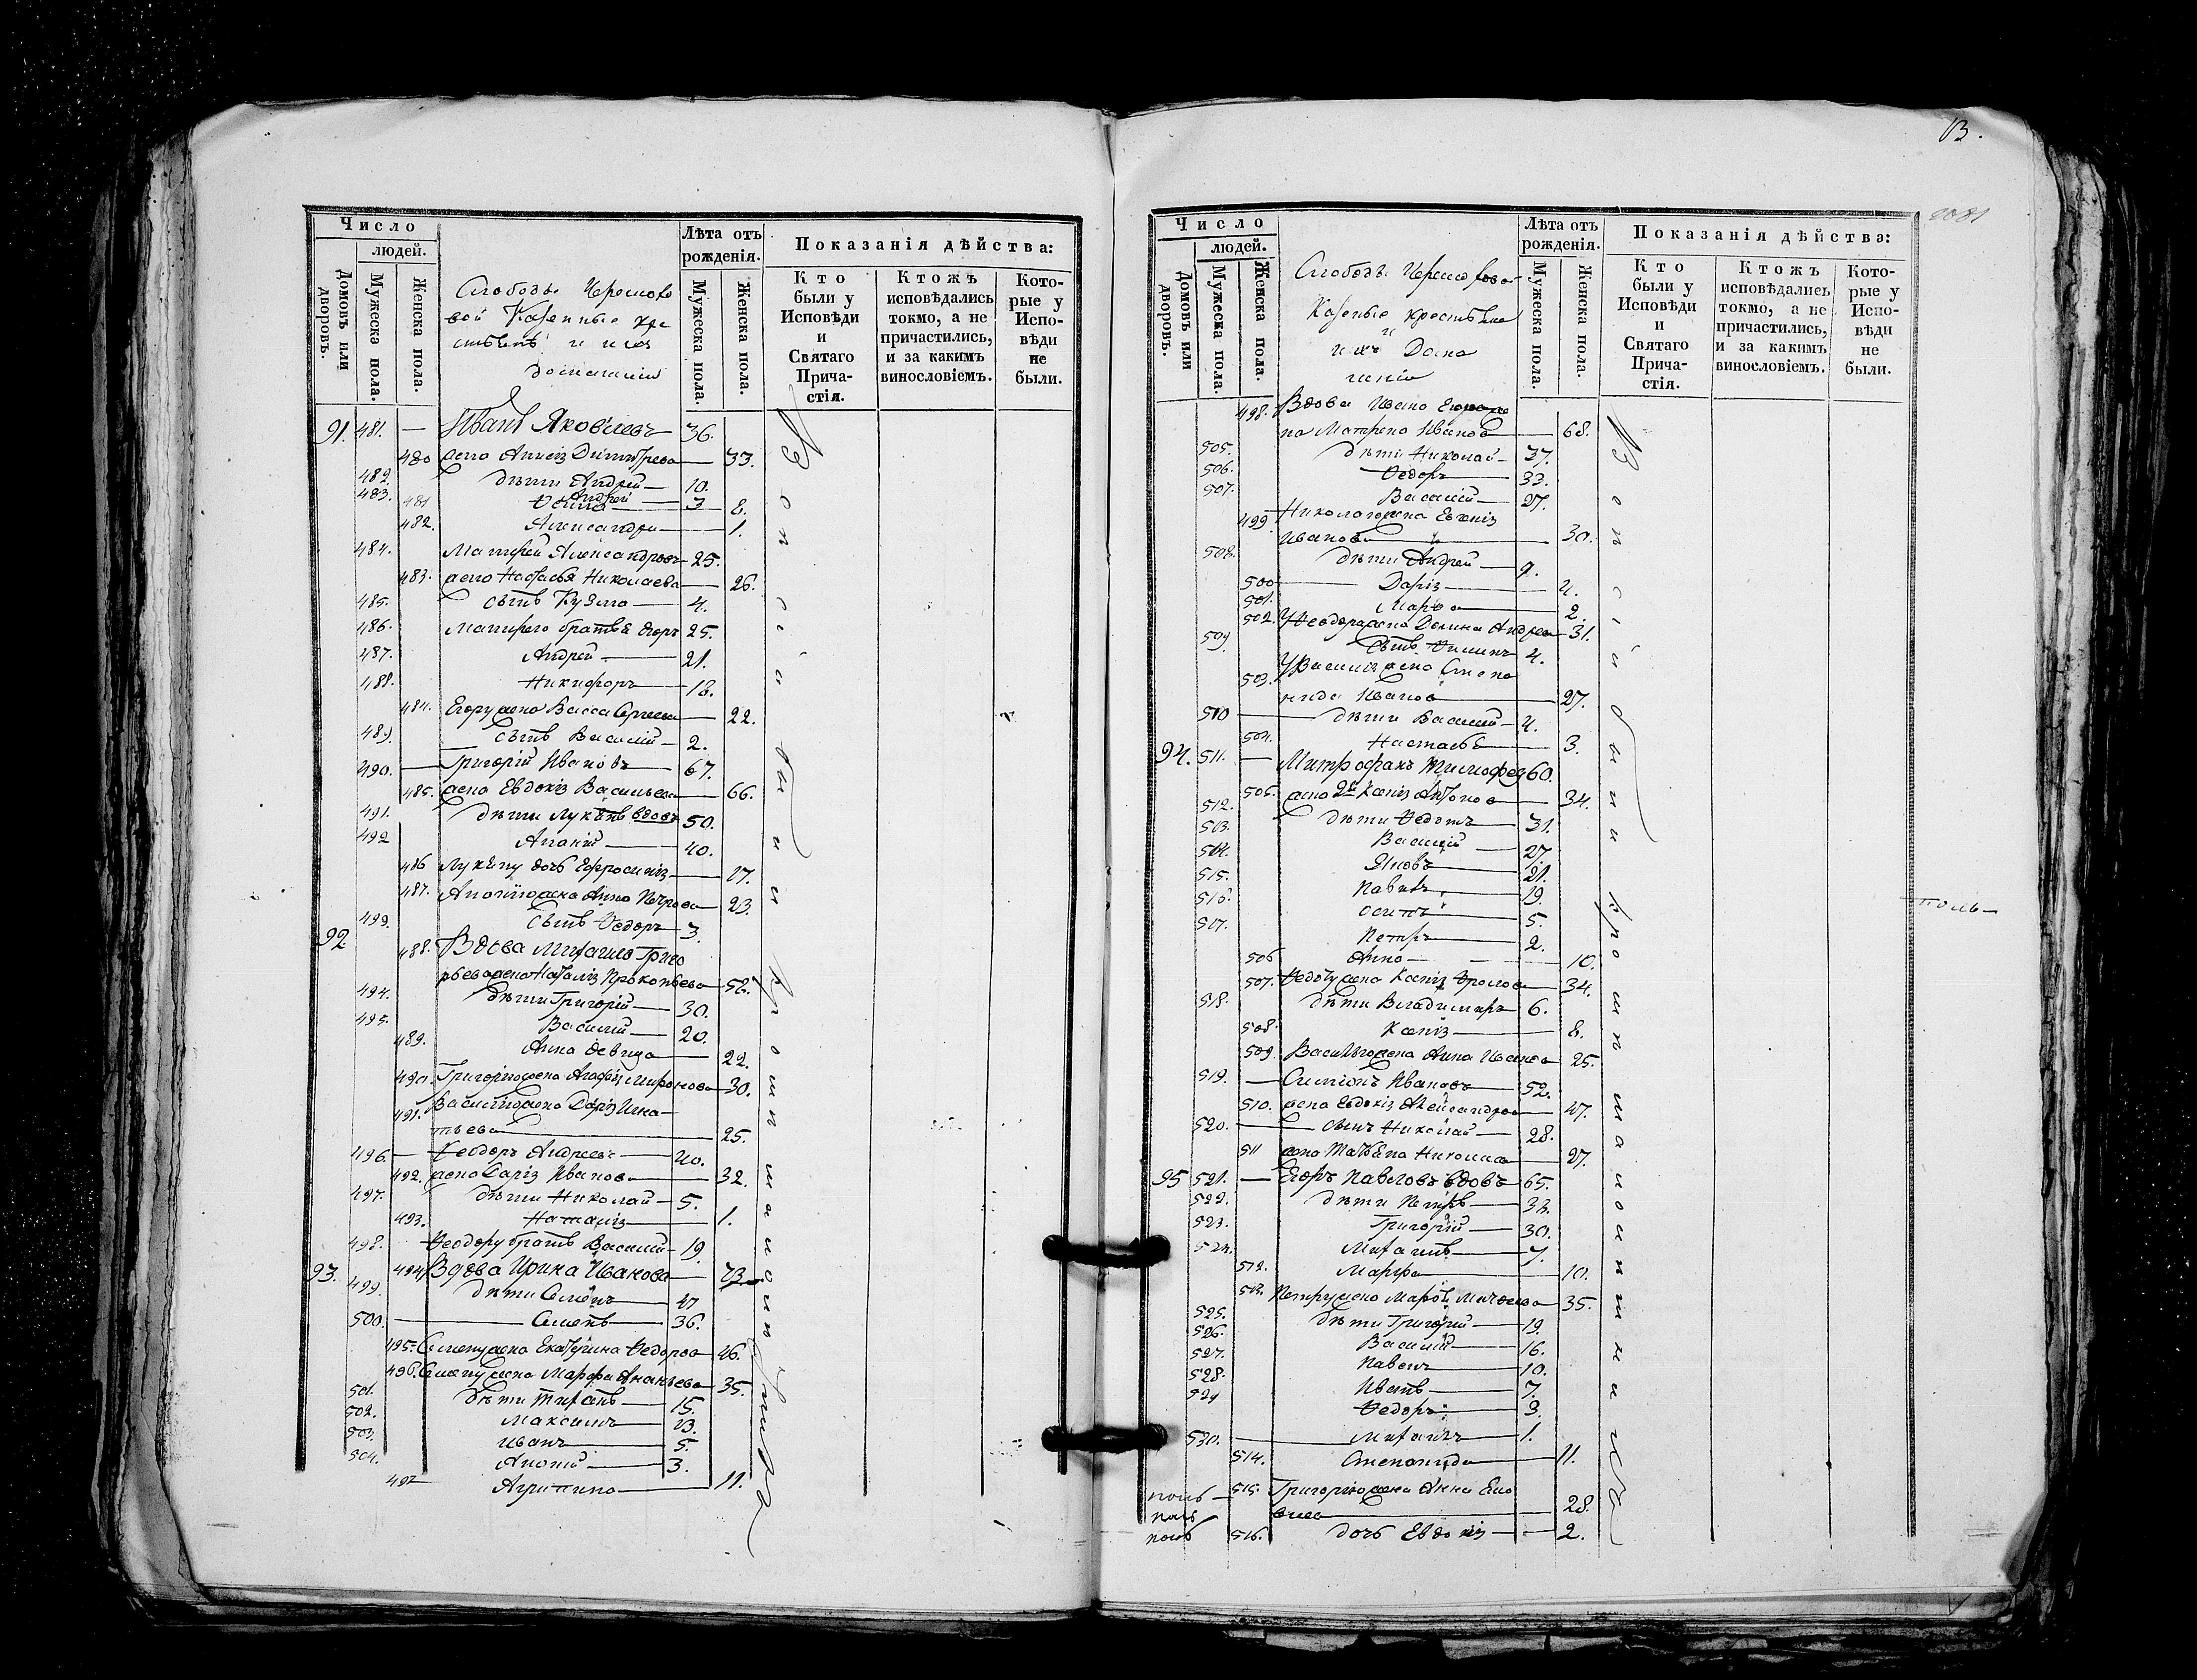 Число
людей.
Домовъ или дворовъ.
Мужеска пола.
Женска пола.
Слободы Черемохо
вой Казенные кре
стьянъ и ихъ
домашнiя
Лѣта отъ
рожденiя.
Мужеска пола.
Женска пола.
Показанiя дѣйства:
Кто
были у
Исповѣди
и
Святаго
Прича-
стiя.
Ктожъ
исповѣдались
токмо, а не
причастились,
и за какимъ
винословiемъ.
Кото-
рые у
Испо-
вѣди
не
были.
91. 481. — Иванъ Яковлевъ 36.
480 жена Анисiя Димитрева 33.
482. дѣти Андрей 10.
483. 481 Андрей 3 8.
482. Александра 1.
484. Матфей Александровъ 25.
483. жена Настасья Николаева 26.
485. сынъ Кузма 4.
486. Матфею братья Егоръ 25.
487. Андрей 21.
488. Никифоръ 18.
484. Егору жена Васса Сергеева 22.
489. сынъ Василiй 2.
490. — Григорiй Ивановъ 67.
485. жена Евдокiя Васильева 66.
491. дѣти Лукьянъ вдовъ 50.
492 Ананiй 40.
486 Лукьяну дочь Ефросинiя 17.
487. Ананiю жена Анна Петрова 23.
499. сынъ Ѳедоръ 3.
92. 488. Вдова Михаила Григо
рьева жена Наталiя Прокопьева 58.
494. дѣти Григорiй 30.
495. Василiй 20.
489. Анна девица 22.
490. Григорiю жена Агафiя Миронова 30.
491. Василiю жена Дарiя Игна
тьева 25.
496. — Ѳеодоръ Андреевъ 40.
492. жена Дарiя Иванова 32.
497. дѣти Николай 5.
493. Наталiя 1.
498. Ѳеодору братъ Василiй 19
93. 494 Вдова Ирина Иванова 73
499. дѣти Семенъ 47
500. Семенъ 36.
495. Симену жена Екатерина Ѳедорова 46.
496. Семену жена Марфа Ананьева 35.
501. дѣти Тихонъ 15.
502. Максимъ 13.
503. Иванъ 5.
504. Ананiй 3.
497 Агрипина 11.
Во исповѣди
13.
2081
Число
людей.
Домовъ или дворовъ.
Мужеска пола.
Женска пола.
Слободы Черемохово
Казеные крестьяне
и
ихъ Дома
шнiя
Лѣта отъ
рожденiя.
Мужеска пола.
Женска пола.
Показанiя дѣйства:
Кто
были у
Исповѣди
и
Святаго
Прича-
стiя.
Ктожъ
исповѣдались
токмо, а не
причастились,
и за какимъ
винословiемъ.
Кото-
рые у
Испо-
вѣди
не
были.
498. Вдова Ивана
на Матрена Иванова 68.
505. дѣти Николай 37.
506. Ѳедоръ 33.
507. Василiй 27.
499 Николаю жена Евгенiя
Иванова 30.
508. дѣти Андрей 9.
500 Дарiя 4.
501. Марѳа 2.
502. Ѳеодора жена Домна Андрева 31.
509 сынъ Филипъ 4.
503. У Василiя жена Степа
нида Иванова 27.
510 дѣти Василiй 4.
504. Настасья 3.
94. 511. — Митрофанъ Тимофеев 60.
505. жена 2я Ксенiя Антонова 34.
512. дѣти Ѳедотъ 31.
513. Василiй 27.
514. Яковъ 21.
515. Павелъ 19.
516. Осипъ 5.
517. Петръ 2.
506 Анна 10.
507. Ѳедоту жена Ксенiя Фролова 34.
518. дѣти Владимиръ 6.
508. Ксенiя 8.
509. Василью жена Анна Иванова 25.
519. — Симеонъ Ивановъ 52.
510. жена Евдокiя Александрова 47.
520. сынъ Николай 28.
511 жена Татьяна Николаева 27.
95 521. — Егоръ Павловъ вдовъ 65.
522. дѣти Петръ 33.
523. Григорiй 30.
524. Михаилъ 7.
512. Марфа 10.
513. Петру жена Марѳа Матвеева 35.
525. дѣти Григорiй 19.
526. Василiй 16.
527. Павелъ 10.
528. Иванъ 7.
529 Ѳедоръ 3.
530. Михаилъ 1.
514. Степанида 11.
515. Григорiю жена Анна
28.
516. дочь Евдокiя 2.